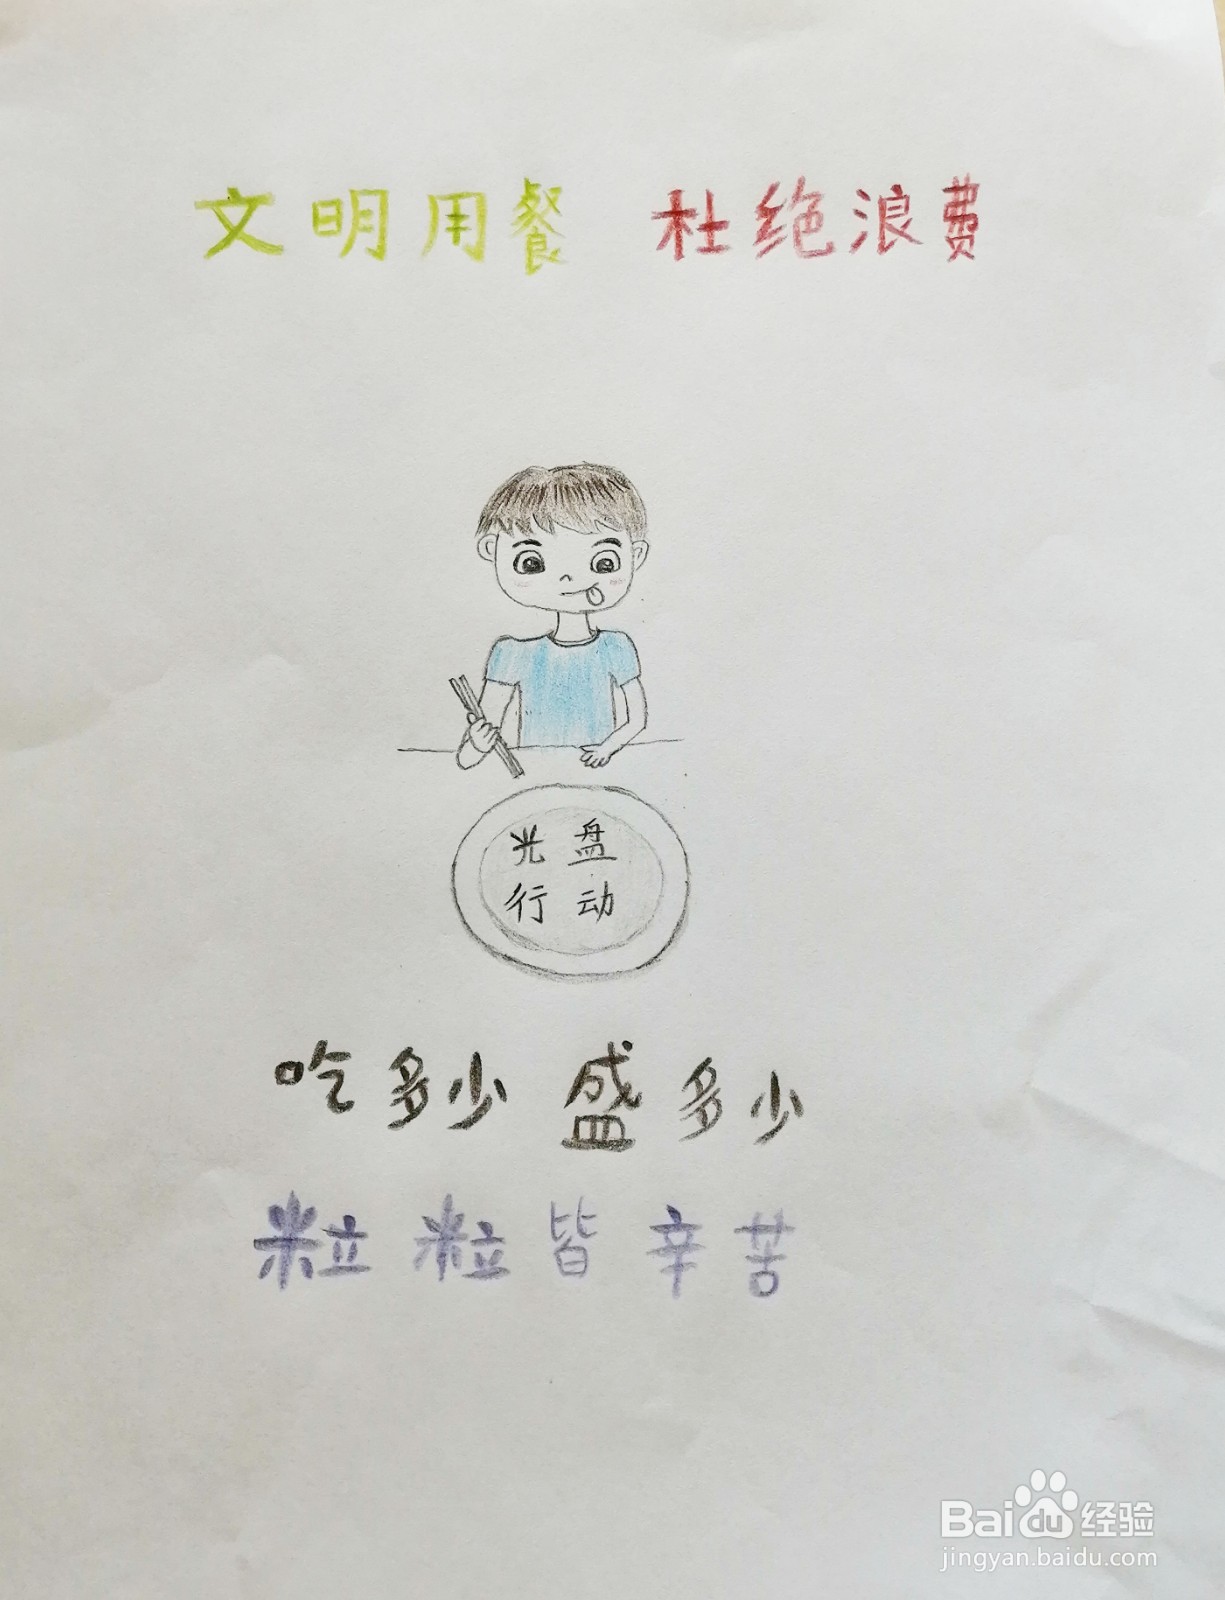 文明用餐 杜绝浪费
光盘
行动
吃多少 盛多少
粒粒皆辛苦
Baidu经验
jingyan.baidu.com